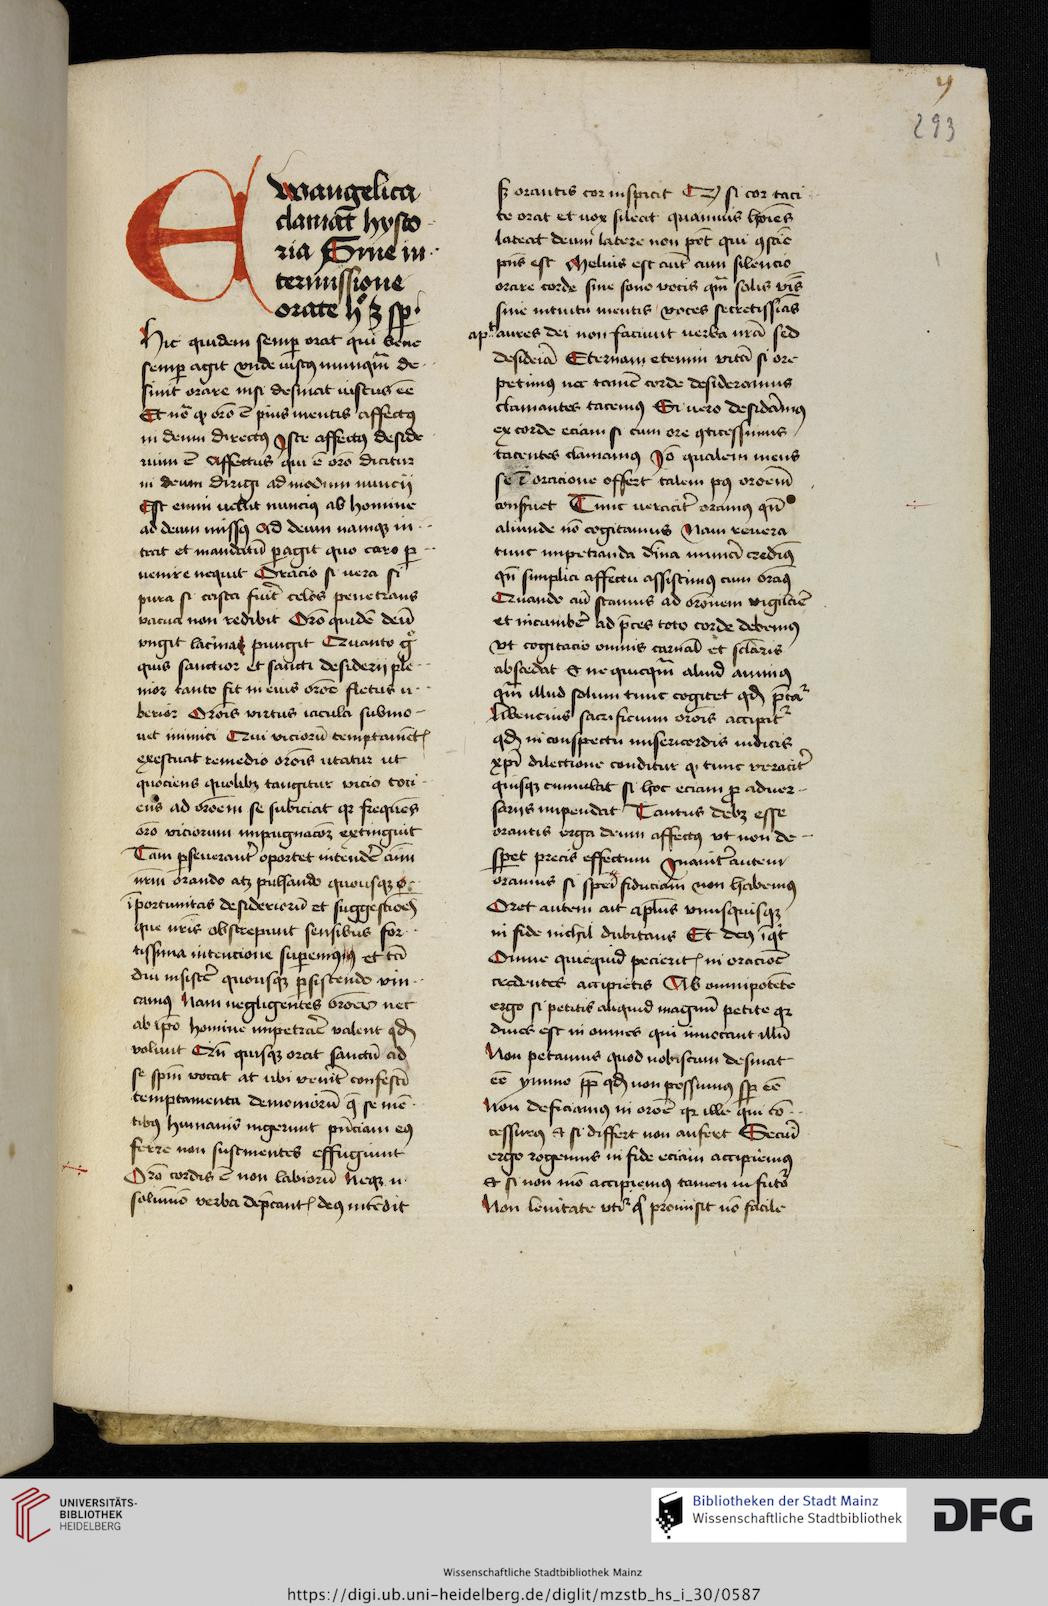 y
293
Ewangelica
clamat hysto
ria Sine in
termissione
orate h
Hic quidem semp orat qui bene
semp agit vnde iustus nunqm de
sinit orare nisi desinat iustus ee
Et no q oro e pius mentis affectus
in deum directus Iste affectus deside
rium e Affectus qui e oro dicitur
in deum dirigi ad modum nuncij
Est enim uelut nuncius ab homine
ad deum missus Ad deum namqz in
trat et mandatu peragit quo caro p
uenire nequit Oracio si uera si
pura si casta fuit celos penetrans
vacua non redibit Oro quide deu
vngit lacrimas pungit Quanto
quis sanctior et sancti desiderij ple
nior tanto fit in eius oroe fletus u
berior Orois virtus iacula submo
uet inimici Cui vicioru temptament
exestuat remedio orois utatur ut
quociens quolibz tangitur vicio toci
ens ad oroem se subiciat qr frequens
oro viciorum impugnacoz extinguit
Tam pseuerant oportet intendere aim
nrm orando atz pulsando quousqz
importunitas desideriorum et suggestioes
que nris obstrepunt sensibus for
tissima intencione supemus et ta
diu insiste quousqz psistendo vin
camus Nam negligentes oroes nec
ab ipo homine impetrare valent qd
volunt Cu quisqz orat sanctu ad
se spm vocat at ubi venit confestim
temptamenta demonioru q se me
tibus humanis ingerunt pnciam eius
ferre non sustinentes effugiunt
Oro cordis e non labioru Neqz n
solumo verba depcant deus intendit
sz orantis cor inspicit Qz si cor taci
te orat et uox sileat quamuis hoies
lateat deum latere non pot qui scie
pns est Melius est aut cum silencio
orare corde sine sono vocis qm solis vbis
sine intuitu mentis voces secretissimas
ap aures dei non faciunt uerba nra sed
desideria Eternam etenim vita si ore
petimus nec tame corde desideramus
clamantes tacemus Si vero desidamus
ex corde eciam si cum ore conticessimus
tacentes clamamus Io qualem mens
se i oracione offert talem pus oroem
conseruet Tunc veraciter oramus qn
aliunde no cogitamus Nam reuera
tunc impetranda dina munera credimus
qn simplici affectu assistimus cum oramus
Quando au stamus ad oronem vigilare
et incumbere ad pces toto corde debemus
Vt cogitacio omnis carnal et sclaris
abscedat Et ne quicqm aliud animus
qm illud solum tunc cogitet qd pcatur
Libencius sacrificium orois accipitur
qd in conspectu misericordis iudicis
xpi dilectione conditur qz tunc veraciter
quisqz cumulat si hoc eciam p aduer
sarijs impendat Tantus debz esse
orantis erga deum affectus ut non de
speret precis effectum Inaniter autem
oramus si spei fiduciam non habemus
Oret autem ait aplus vnusquisqz
in fide nichil dubitans Et deus iqt
Omne quicquid pecierit in oracioe
credentes accipietis Ab omnipotente
ergo si petitis aliquid magnum petite qr
diues est in omnes qui inuocant illu
Non petamus quod nobiscum desinat
ee ymmo pp qd non possumus sp ee
Non deficiamus in oroe qr ille qui con
cessurus et si differt non aufert Securi
ergo rogemus in fide eciam accipiemus
Et si non mo accipiemus tamen in futuro
Non leuitate vtitur qd promisit no facile
UNIVERSITÄTS-
BIBLIOTHEK
HEIDELBERG
Bibliotheken der Stadt Mainz
Wissenschaftliche Stadtbibliothek
DFG
Wissenschaftliche Stadtbibliothek Mainz
https://digi.ub.uni-heidelberg.de/diglit/mzstb_hs_i_30/0587